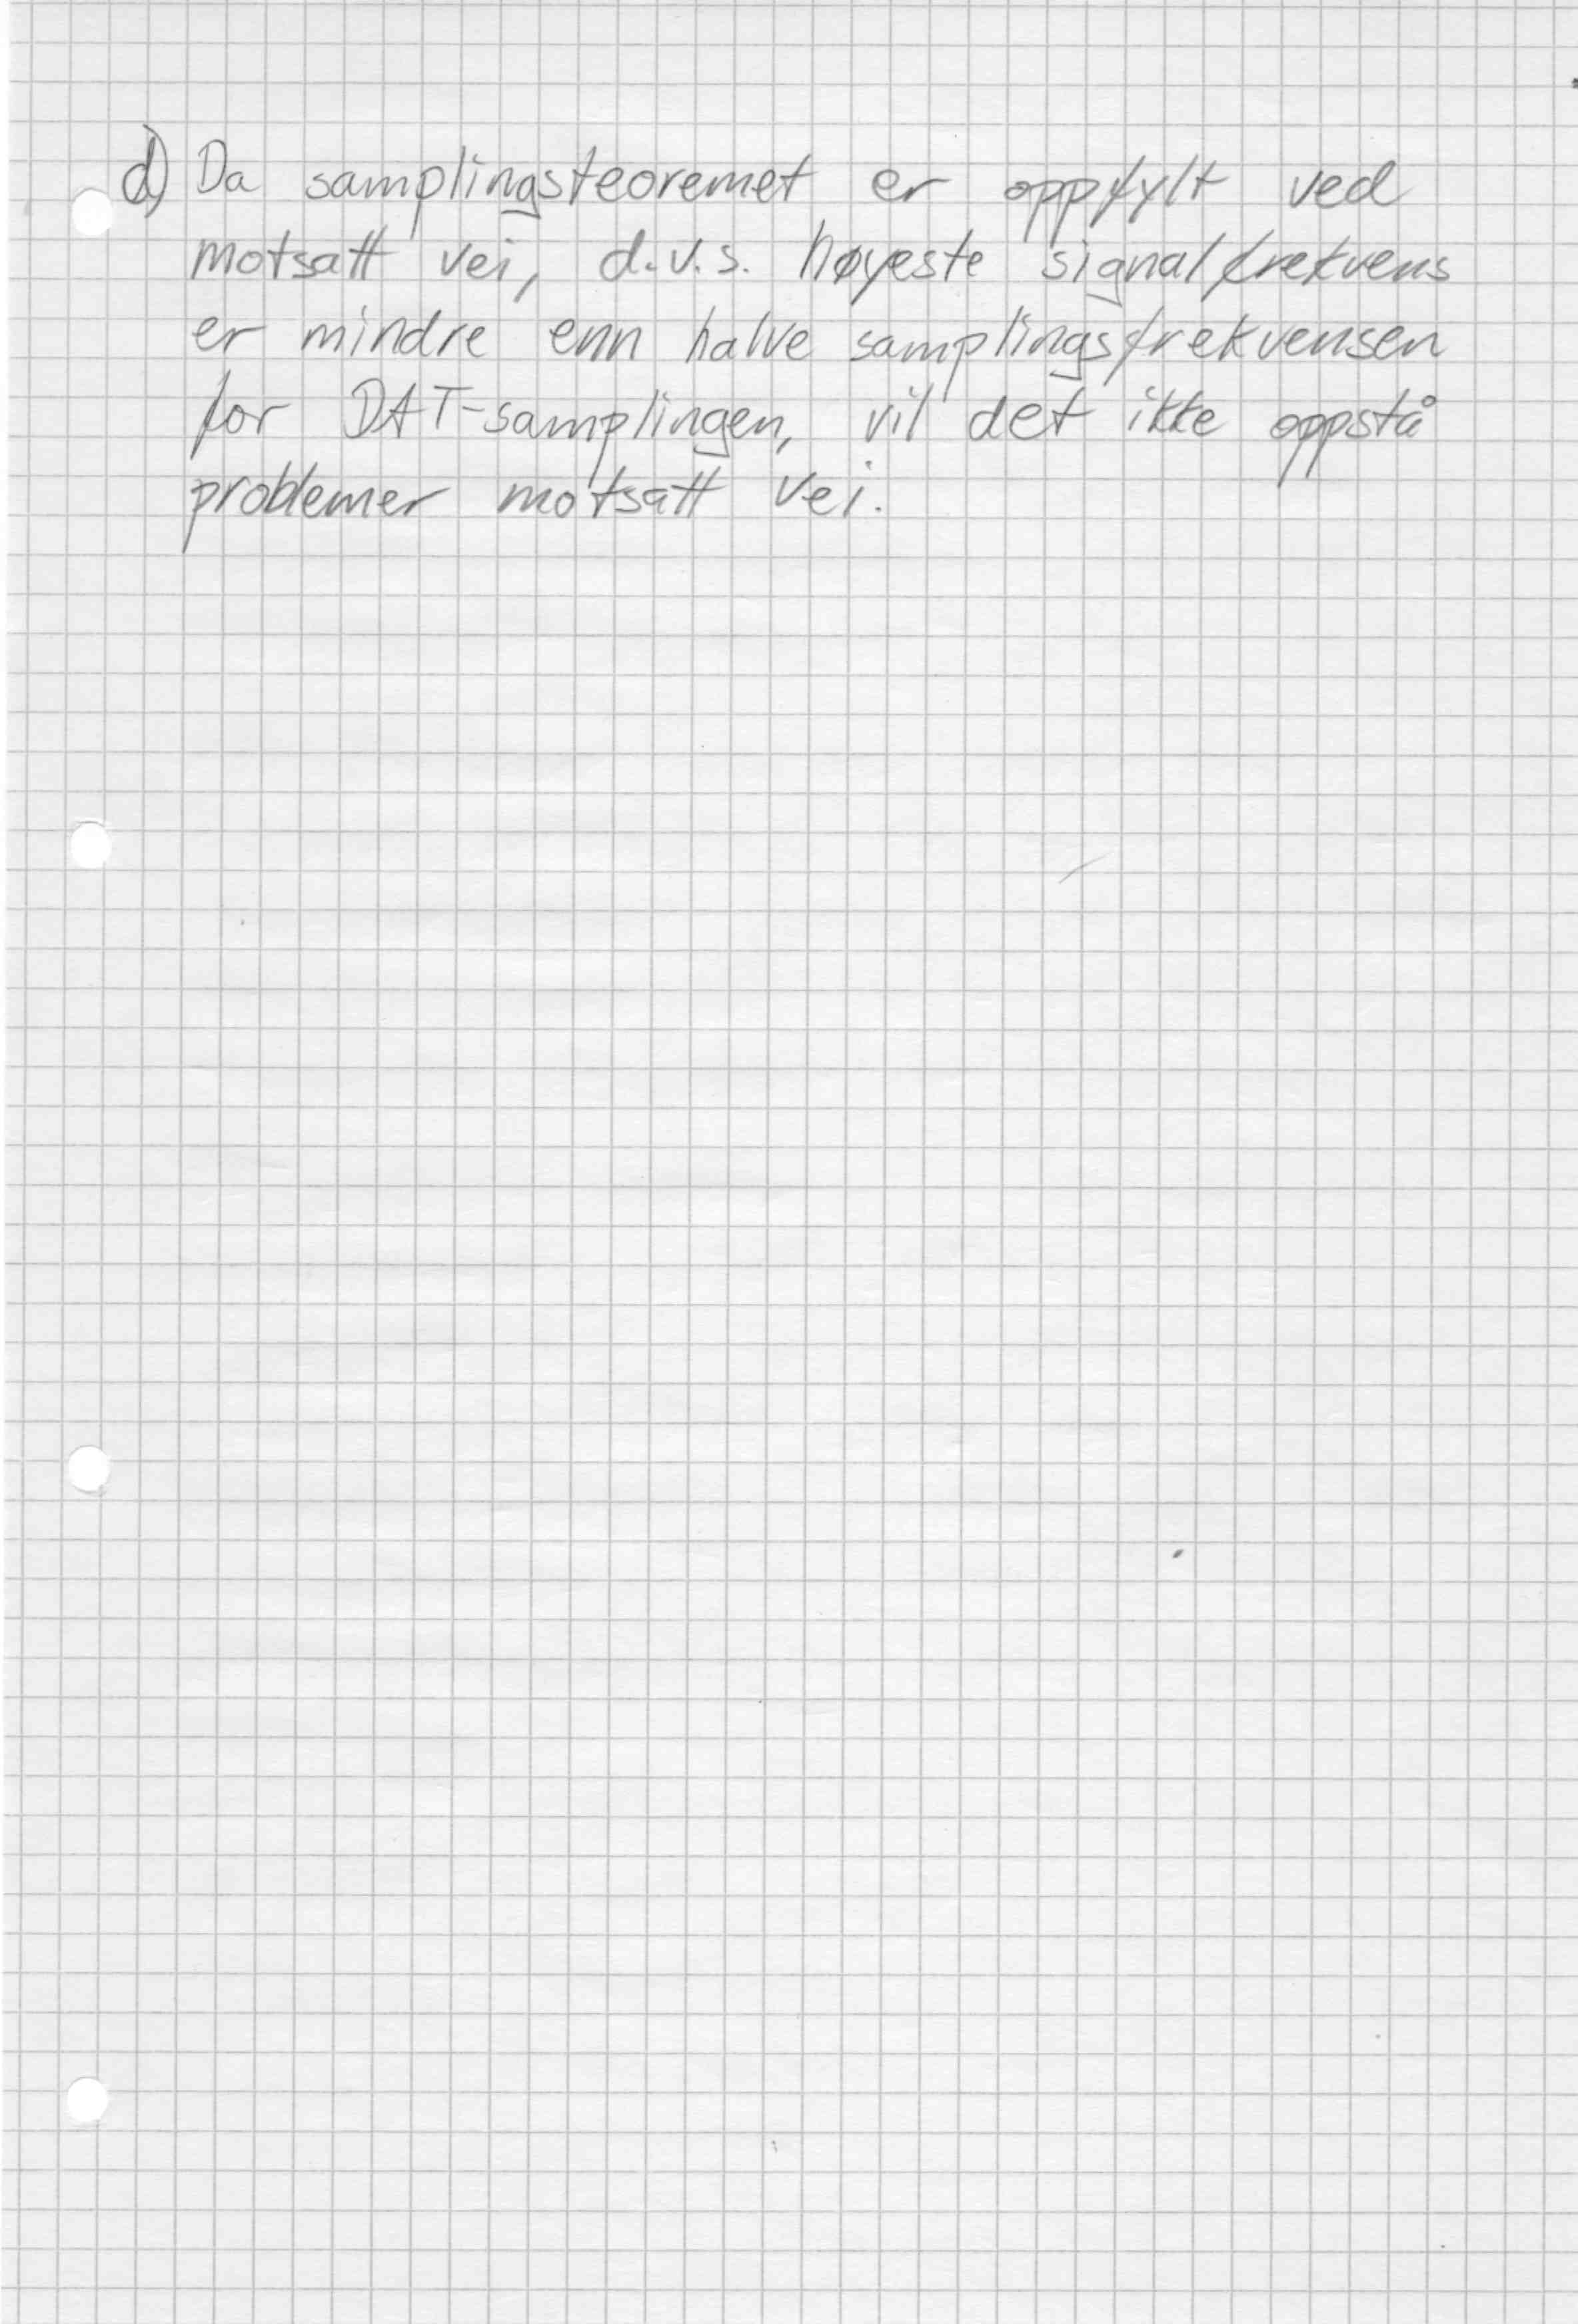 d) Da samplingsteoremet er oppfylt ved
motsatt vei, d.v.s. høyeste signalfrekvens
er mindre enn halve samplingsfrekvensen
for DAT-samplingen, vil det ikke oppstå
problemer motsatt vei.